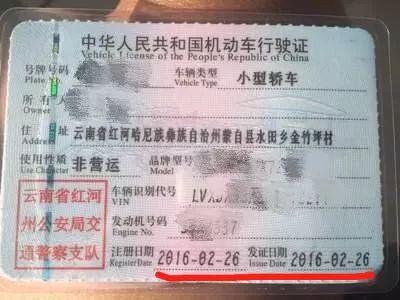 中华人民共和国机动车行驶证
Vehicle License of the People's Republic of China
号牌号码 车辆类型 小型轿车
Plate No. Vehicle Type
所有人
Owner
住址 云南省红河哈尼族彝族自治州蒙自县水田乡金竹坪村
Address
使用性质 非营运 品牌型号
Use Character Model
车辆识别代号
VIN
发动机号码
Engine No.
注册日期 2016-02-26 发证日期 2016-02-26
Register Date Issue Date
云南省红河
州公安局交
通警察支队